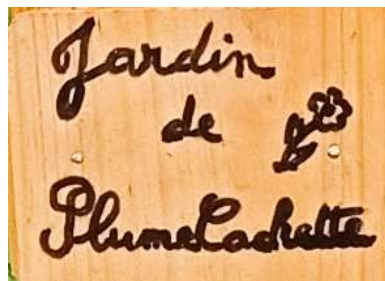 Jardin
de
PlumeCachette